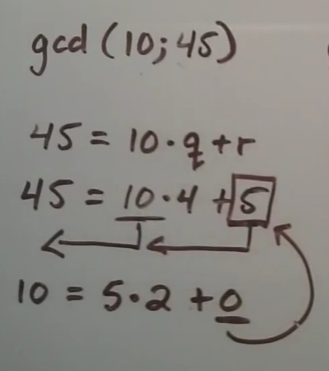 gcd (10;45)
45 = 10·q+r
45 = 10·4 +5
10 = 5·2 +0